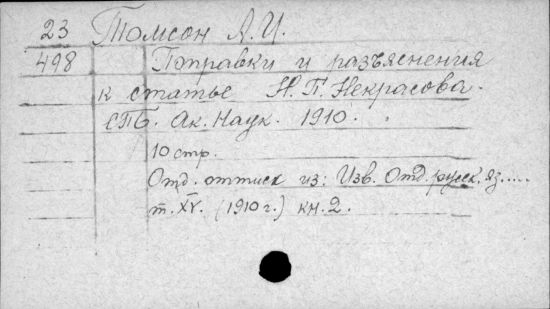 23 Томсон А.И.
498 Поправки и разъяснения
к статье Н.П.Некрасова.
СПБ. Ак. Наук. 1910.
10 стр.
Отд. оттиск из: Изв. Отд. русск. яз.....
т. XV. (1910 г.) кн. 2.